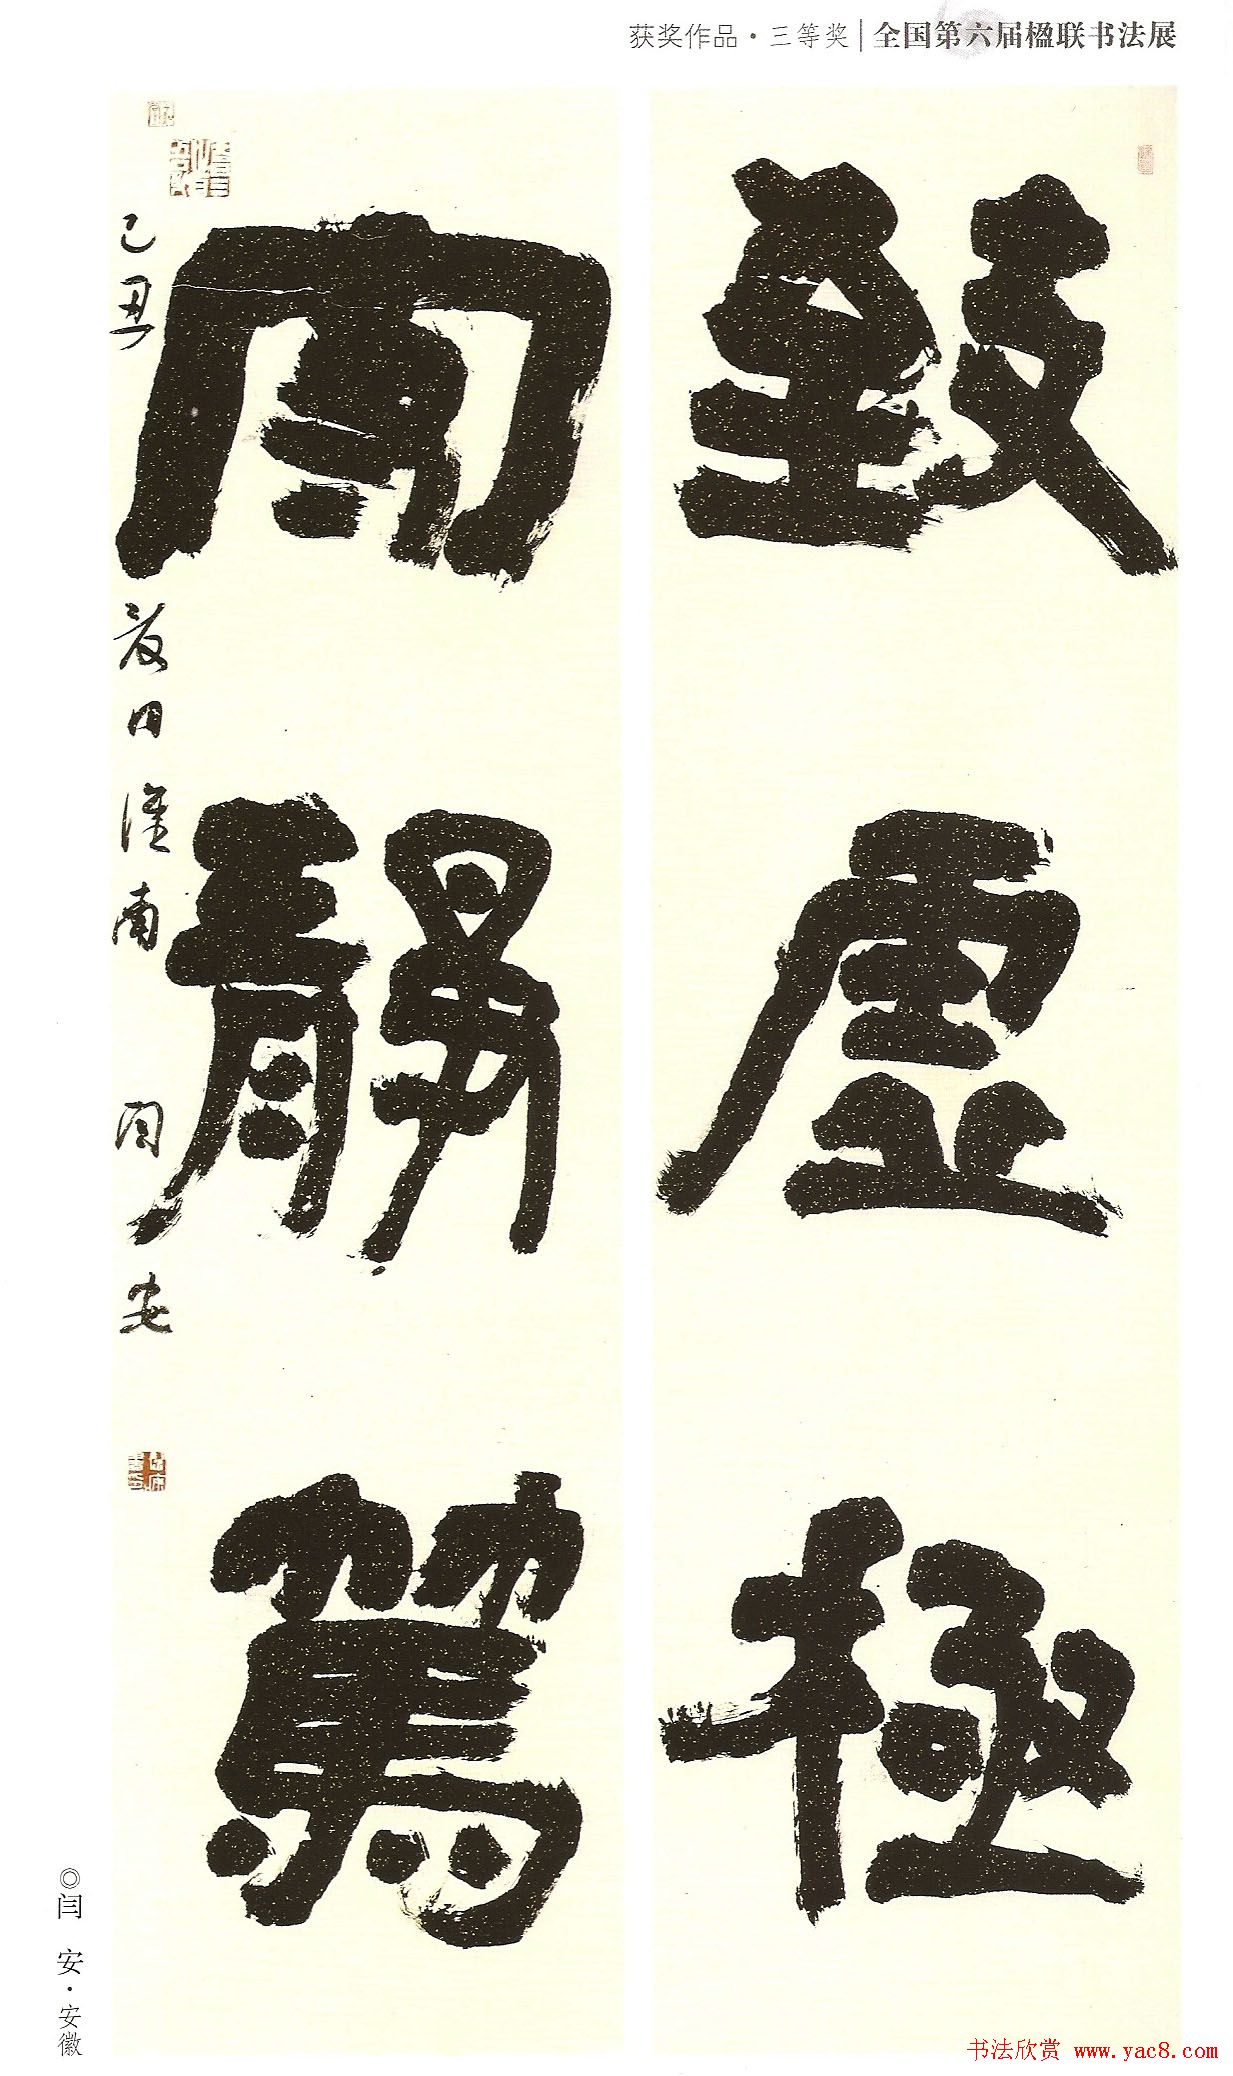 获奖作品·三等奖|全国第六届楹联书法展
致虛極
守靜篤
己丑夏日淮南闫安
◎闫安·安徽
书法欣赏 www.yac8.com